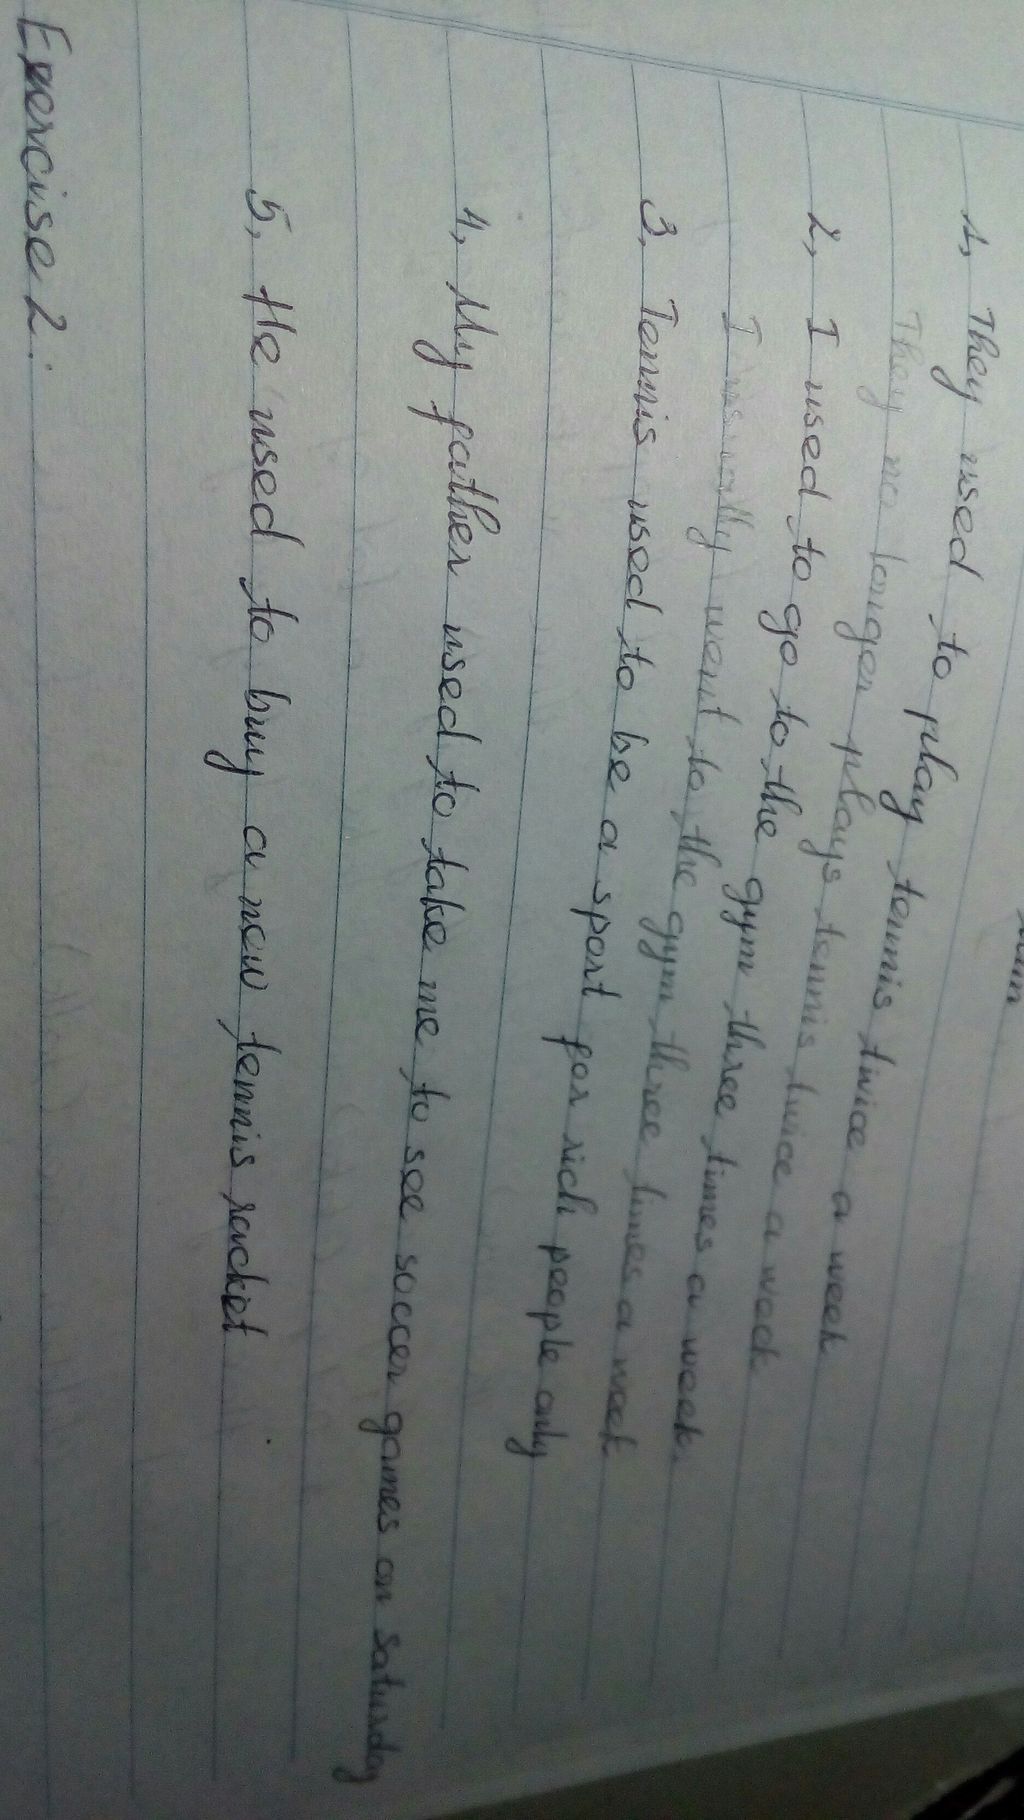 1, They used to play tennis twice a week
They no longer plays tennis twice a week
2, I used to go to the gym three times a week.
I usually went to the gym three times a week
3, Tennis used to be a sport for rich people only
4, My father used to take me to see soccer games on saturday
5, He used to buy a new tennis racket
Exercise 2: